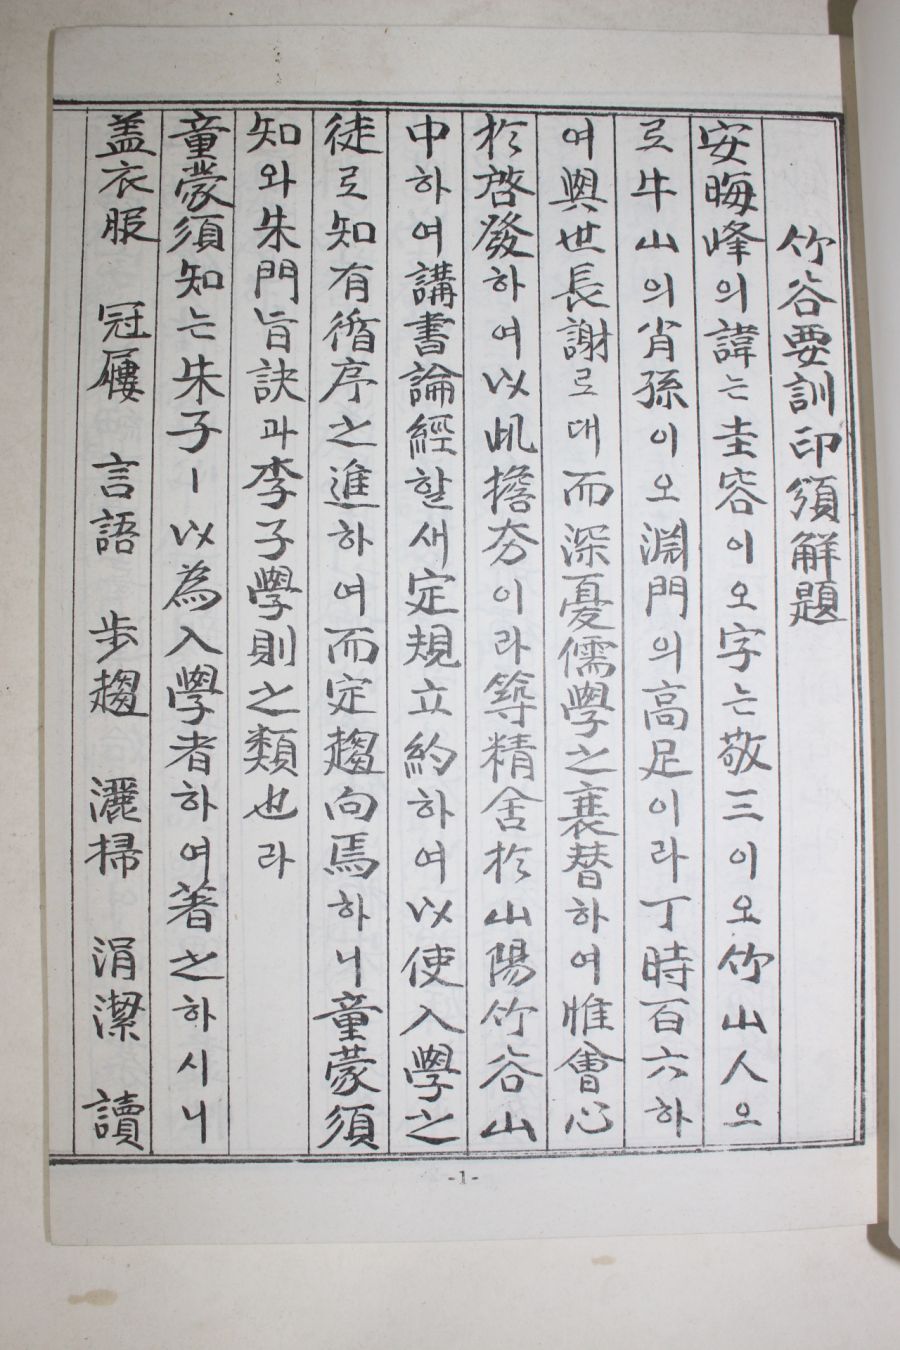 竹谷要訓印須解題
安晦峰의諱는圭容이오字는敬三이오竹山人으
로牛山의肖孫이오淵門의高足이라丁時百六하
여與世長謝로대而深憂儒學之衰替하여惟會心
於啓發하여以此擔夯이라築精舍於山陽竹谷山
中하여講書論經할새定規立約하여以使入學之
徒로知有循序之進하여而定趨向焉하니童蒙須
知와朱門旨訣과李子學則之類也라
童蒙須知는朱子ㅣ以為入學者하여著之하시니
盖衣服 冠屨 言語 步趨 灑掃 涓潔 讀
-1-